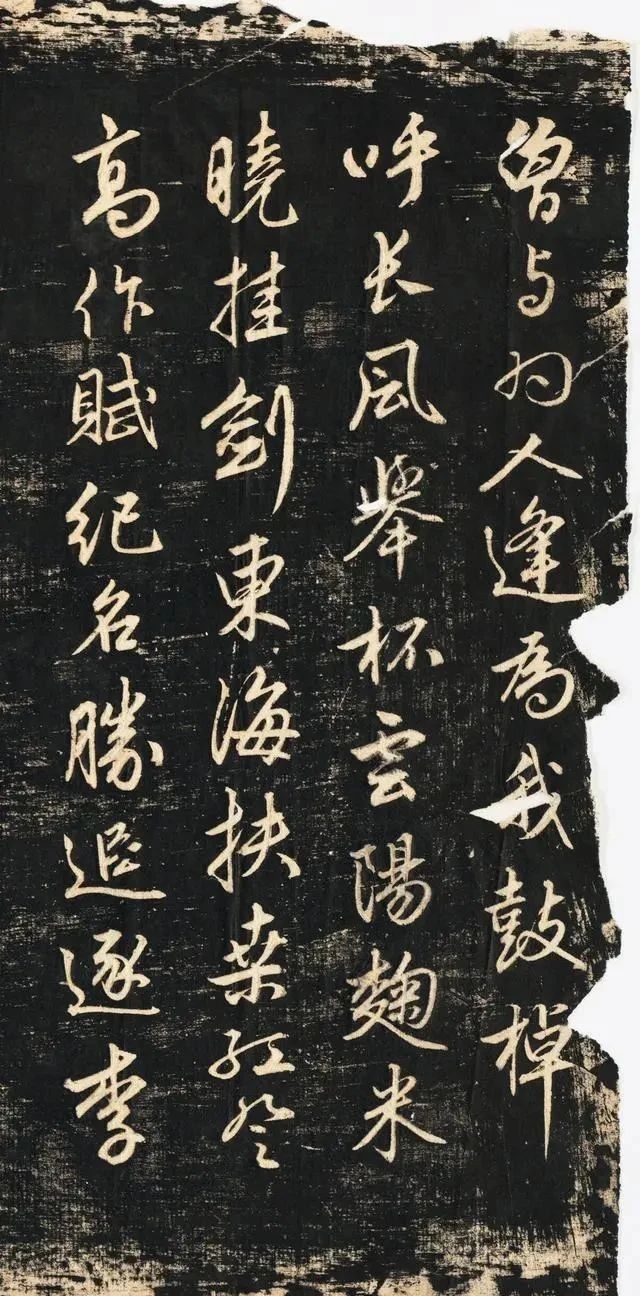 曾与为人逢為我鼓棹
呼长風舉杯雲陽麴米
曉挂劍東海扶桒紅登
高作賦紀名勝追逐李